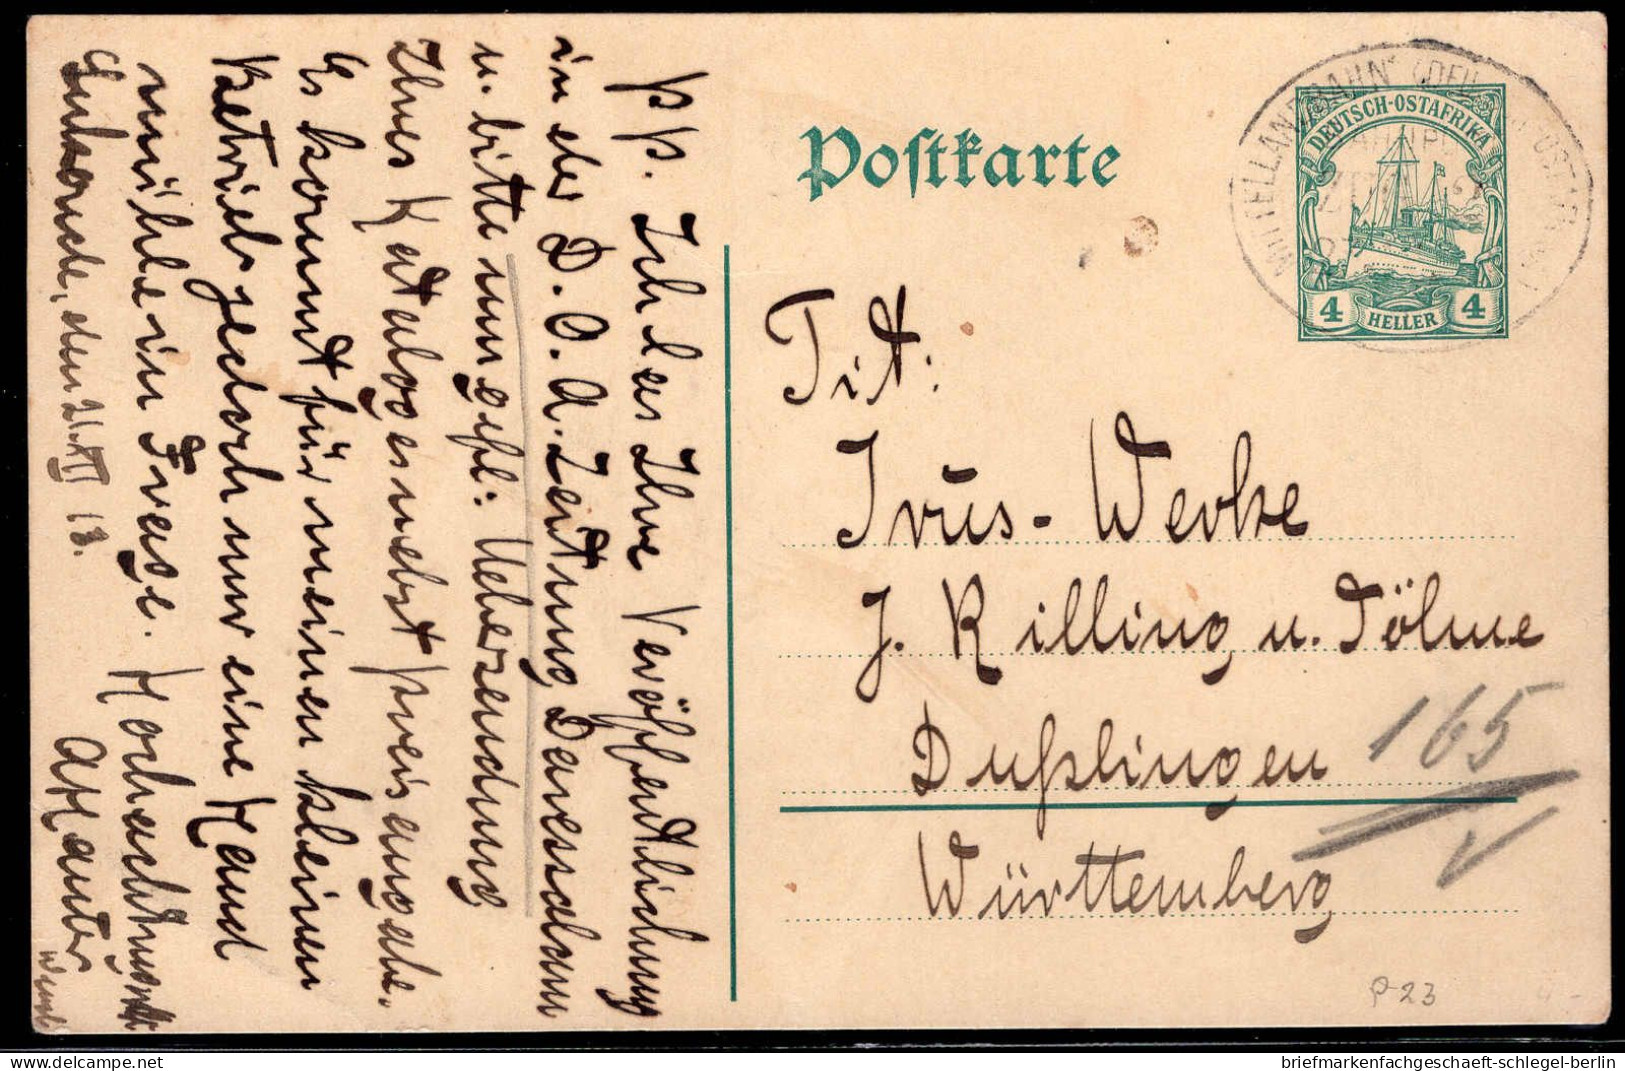 P. P. Ich las Ihre Veröffentlichung
in der D. O. A. Zeitung Daressalam
u. bitte umgehl: Uebersendung
Ihres Kataloges nebst Preisangabe.
Es kommt für meinen kleinen
Betrieb jedoch nur eine Hand
mühle in Frage. Hochachtungsvoll
den 21. XII 13.
Postkarte
MITTELLANDBAHN
DEUTSCH-OSTAFRIKA
4 HELLER 4
Tit:
Irus-Werke
J. Rilling u. Söhne
Dußlingen
165
Württemberg
P 23
briefmarkenfachgeschaeft-schlegel-berlin